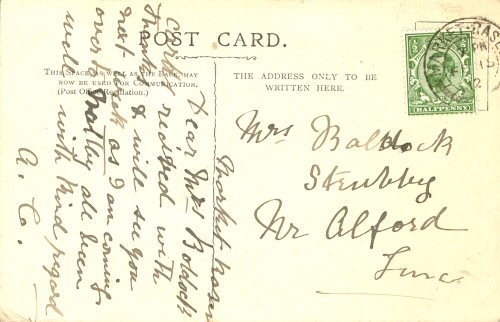 POST CARD.
THIS SPACE, AS WELL AS THE BACK, MAY
NOW BE USED FOR COMMUNICATION.
(Post Office Regulation.)
THE ADDRESS ONLY TO BE
WRITTEN HERE.
MARKET RAS
HALFPENNY
Mrs Baldock
Strubby
Nr Alford
Linc
Market Rasen
Dear Mrs Baldock
Card recived with
Thanks I will see you
next week as I am coming
over to all been
well with kind regard
A. C.